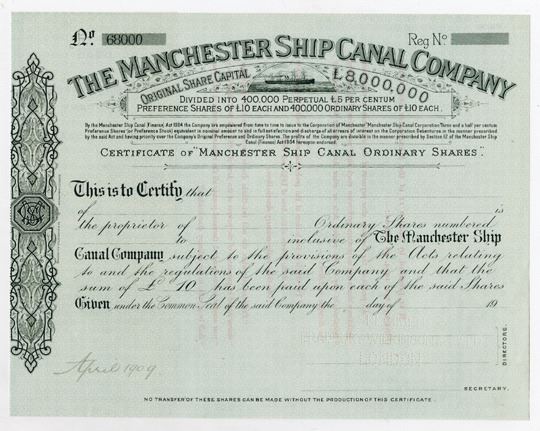 No. 68000
Reg No.
THE MANCHESTER SHIP CANAL COMPANY
ORIGINAL SHARE CAPITAL £8,000,000
DIVIDED INTO 400,000 PERPETUAL £5 PER CENTUM
PREFERENCE SHARES OF £10 EACH AND 400,000 ORDINARY SHARES OF £10 EACH.
By the Manchester Ship Canal (Finance) Act 1904 the Company are empowered from time to time to issue to the Corporation of Manchester "Manchester Ship Canal Corporation Three and a half per centum
Preference Shares (or Preference Stock) equivalent in nominal amount to and in full satisfaction and discharge of all arrears of interest on the Corporation Debentures in the manner prescribed
by the said Act and having priority over the Company's Original Preference and Ordinary Shares. The profits of the Company are divisible in the manner prescribed by Section 12 of the Manchester Ship
Canal (Finance) Act 1904 hereupon endorsed.
CERTIFICATE OF "MANCHESTER SHIP CANAL ORDINARY SHARES".
This is to Certify that
of is
the proprietor of Ordinary Shares numbered
to inclusive of The Manchester Ship
Canal Company subject to the provisions of the Acts relating
to and the regulations of the said Company and that the
sum of £ 10 has been paid upon each of the said Shares
Given under the Common Seal of the said Company the day of 19
DIRECTORS.
April 1909
SECRETARY.
NO TRANSFER OF THESE SHARES CAN BE MADE WITHOUT THE PRODUCTION OF THIS CERTIFICATE.